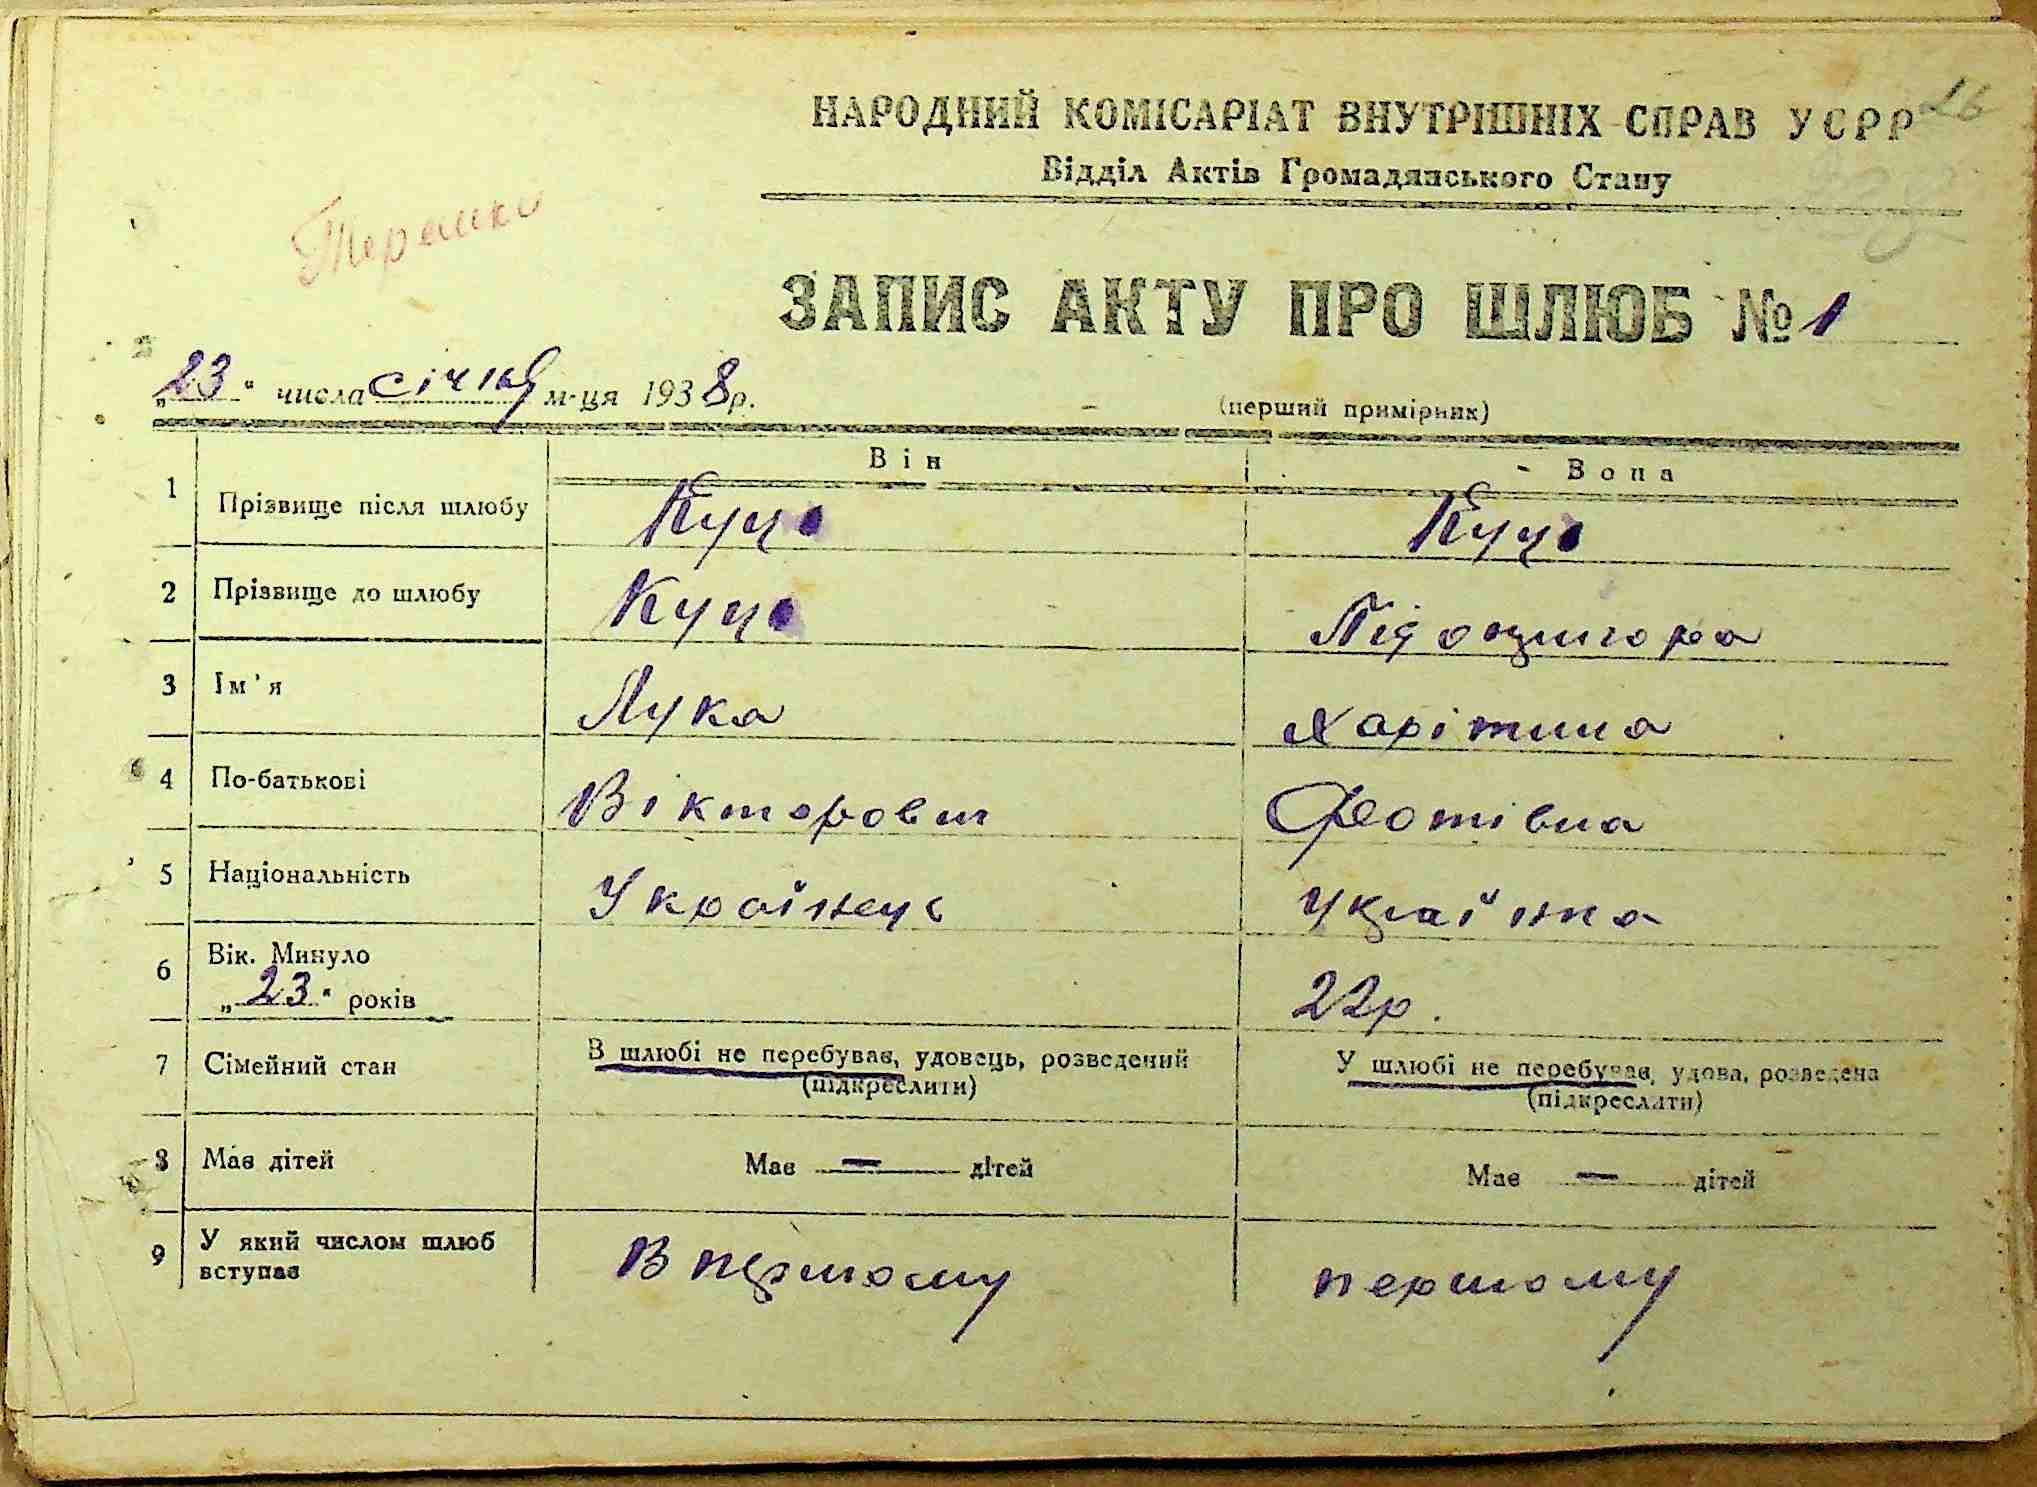 НАРОДНИЙ КОМІСАРІАТ ВНУТРІШНІХ СПРАВ УСРР
26
Відділ Актів Громадянського Стану
Терешки
ЗАПИС АКТУ ПРО ШЛЮБ № 1
„23" числа січня м-ця 1938 р.
(перший примірник)
Він Вона
1 Прізвище після шлюбу Куц Куц
2 Прізвище до шлюбу Куц Підопригора
3 Ім'я Лука Харітина
4 По-батькові Вікторович Фотівна
5 Національність Українець Українка
6 Вік. Минуло
„23" років 22р.
7 Сімейний стан В шлюбі не перебував, удовець, розведений У шлюбі не перебував, удова, розведена
(підкреслити) (підкреслити)
8 Має дітей Має — дітей Має — дітей
9 У який числом шлюб вступає В першому першому